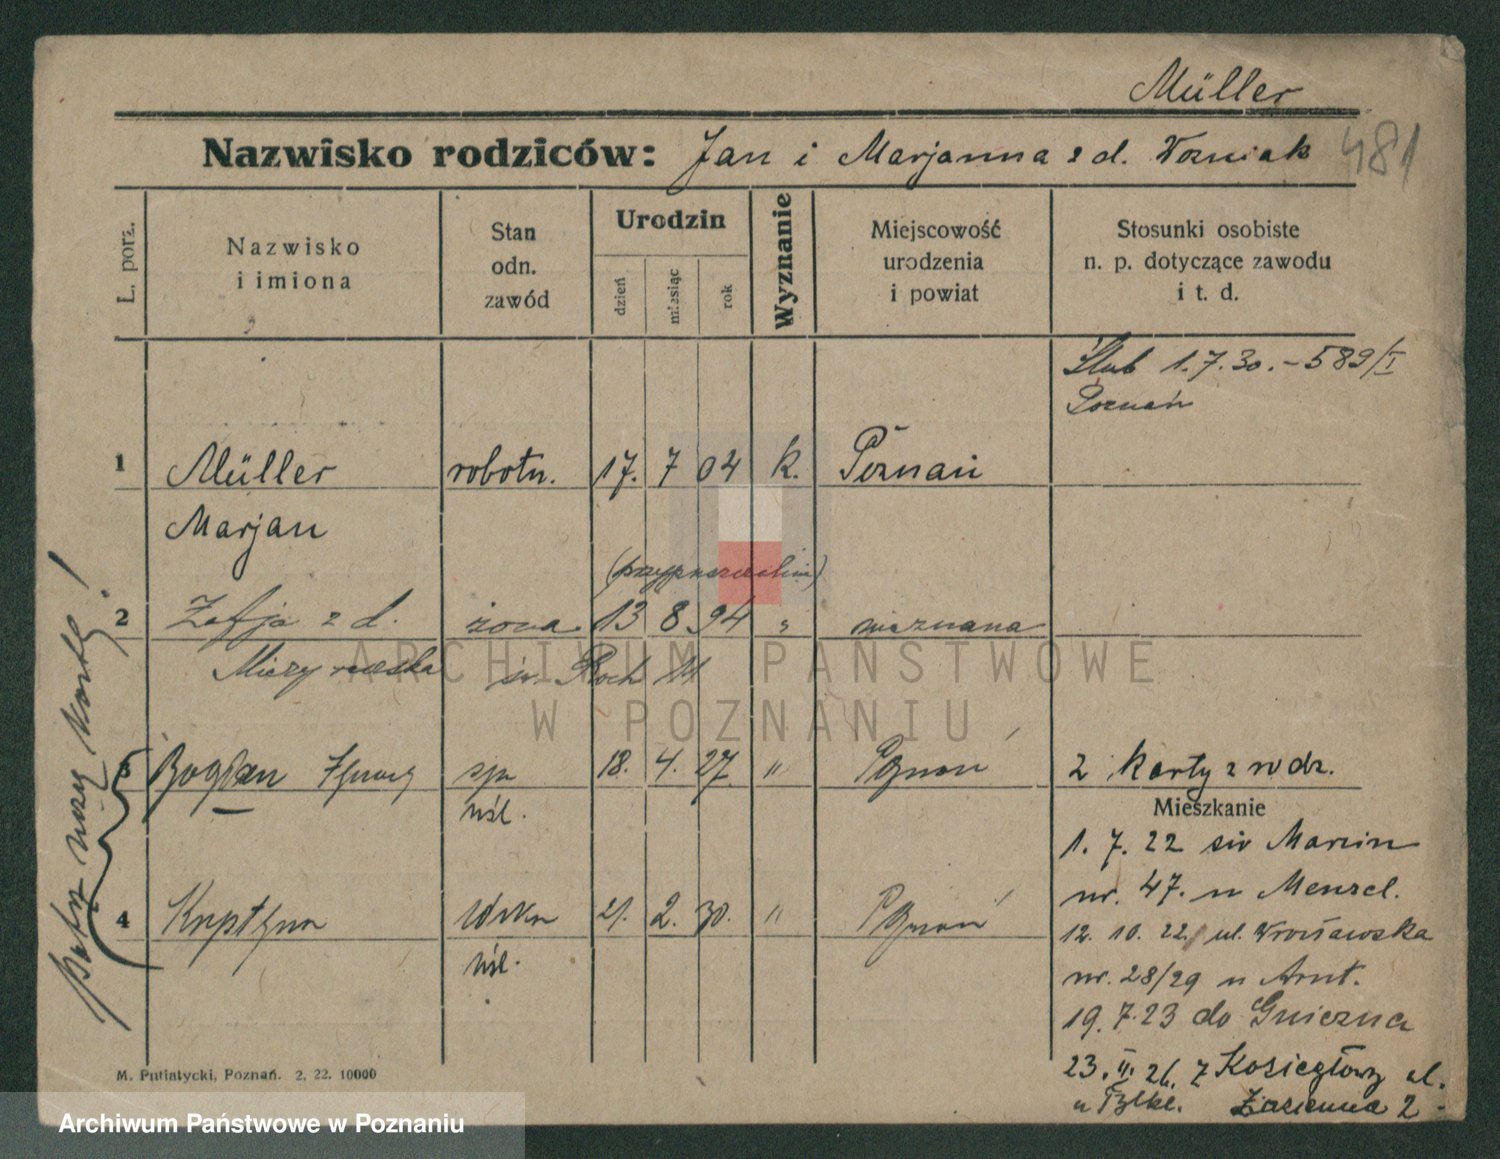 Müller
Nazwisko rodziców: Jan i Marjanna z d. Wozniak
481
L. porz.
Nazwisko i imiona
Stan odn. zawód
Urodzin
dzień
miesiąc
rok
Wyznanie
Miejscowość urodzenia i powiat
Stosunki osobiste n. p. dotyczące zawodu i t. d.
Ślub 1.7.30. – 589/I
Poznań
1 Müller robotn. 17. 7 04 k. Poznań
Marjan
2 Zofja z d. żona 13 8 94 " nieznana
św. Roch 14
3 Bogdan syn 18. 4. 27. " Poznań 2 karty z rodz.
nśl.
Mieszkanie
1. 7. 22 św Marcin
nr. 47. u Menzel.
4 Krystyna córka 21. 2. 30. " Poznań
nśl.
12. 10. 22. ul. Wrocławska
nr. 28/29 u Arnt.
19. 7. 23 do Gniezna
23. II. 26. z Kosiegłowy ul.
Łazienna 2
patrz nową kartę!
M. Putiatycki, Poznań. 2. 22. 10000
ARCHIWUM PAŃSTWOWE
W POZNANIU
Archiwum Państwowe w Poznaniu